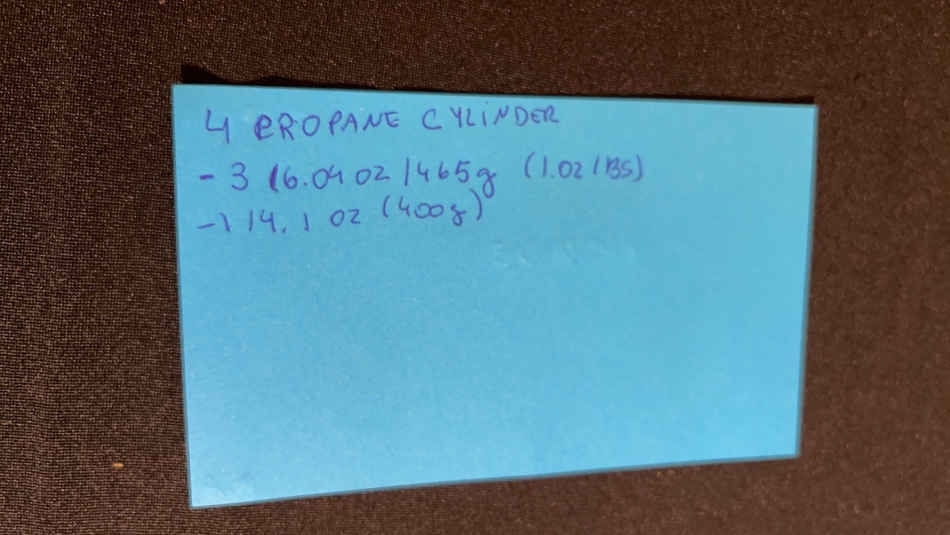 4 PROPANE CYLINDER
- 3 16.04 oz / 465g (1.02 lBS)
- 1 14.1 oz (400g)